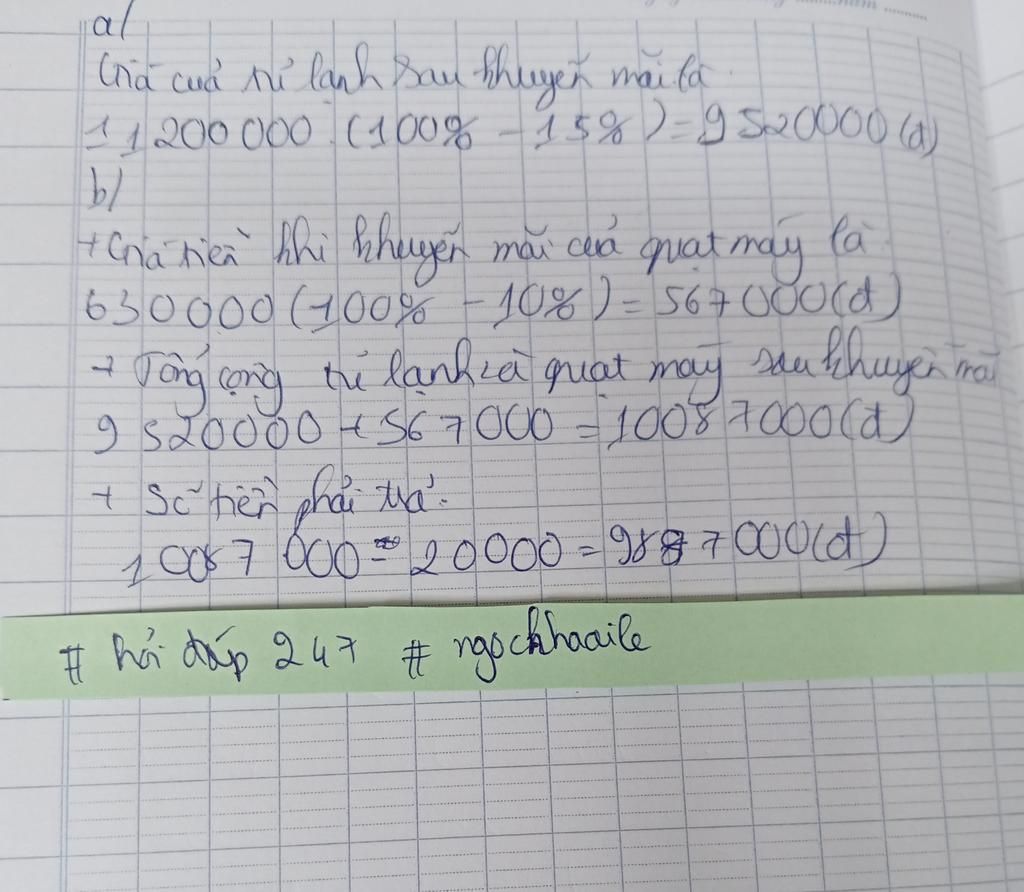 a/
Giá của tủ lạnh sau khuyến mãi là.
11200000.(100% - 15%) = 9520000(đ)
b/
+ Giá tiền khi khuyến mãi của quạt máy là
630000(100% - 10%) = 567000(đ)
+ Tổng cộng tủ lạnh và quạt máy sau khuyến mãi
9520000 + 567000 = 10087000(đ)
+ Số tiền phải trả:
10087000 - 20000 = 9887000(đ)
# hỏi đáp 247 # ngockhaaile